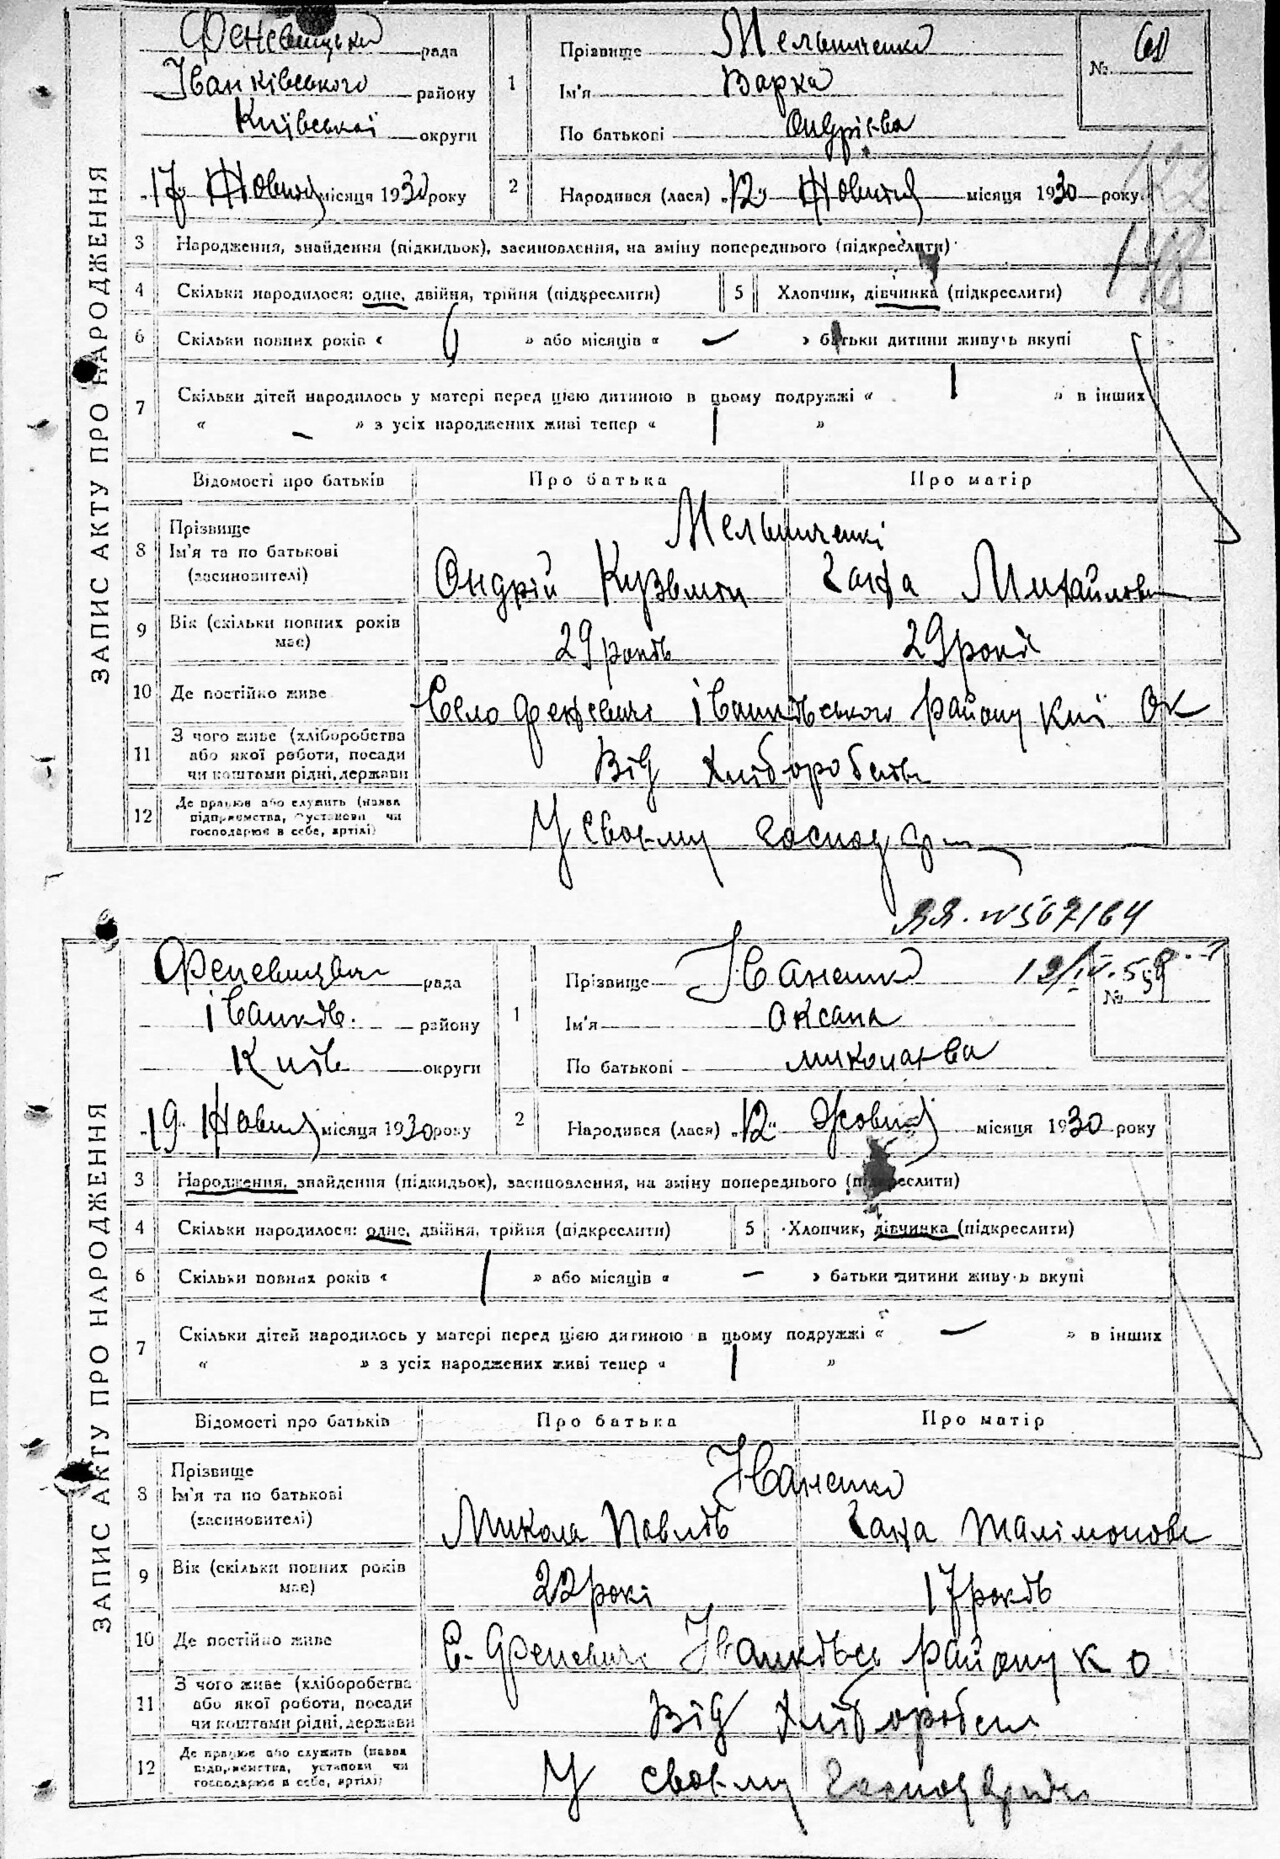 ЗАПИС АКТУ ПРО НАРОДЖЕННЯ
Феневицька рада
Іванківського району
Київської округи
"17" Жовтня місяця 1930 року
1 Прізвище Мельниченко
Ім'я Варка
По батькові Ондрієва
№ 60
2 Народився (лася) "12" Жовтня місяця 1930 року
148
3 Народження, знайдення (підкидьок), засиновлення, на зміну попереднього (підкреслити)
4 Скільки народилося: одне, двійня, трійня (підкреслити)
5 Хлопчик, дівчинка (підкреслити)
6 Скільки повних років « 6 » або місяців « — » батьки дитини живуть вкупі
7 Скільки дітей народилось у матері перед цією дитиною в цьому подружжі « 1 » в інших
« — » з усіх народжених живі тепер « 1 »
Відомості про батьків Про батька Про матір
8 Прізвище
Ім'я та по батькові
(засиновителі)
Мельниченкі
Ондрій Кузьмін Ганна Михайлов
9 Вік (скільки повних років має) 29 років 29 років
10 Де постійно живе Село Феневичі Іванківського району Киї Ок
11 З чого живе (хліборобства
або якої роботи, посади
чи коштами рідні, держави
Від Хліборобства
12 Де працює або служить (назва
підприємства, установи чи
господарює в себе, артілі)
У своєму господар
ЯЯ. № 567164
12/IV.59
ЗАПИС АКТУ ПРО НАРОДЖЕННЯ
Феневицька рада
Іванків. району
Київ округи
"19" Жовтня місяця 1930 року
1 Прізвище Іваненко
Ім'я Оксана
По батькові миколаєва
№
2 Народився (лася) "12" Жовтня місяця 1930 року
3 Народження, знайдення (підкидьок), засиновлення, на зміну попереднього (підкреслити)
4 Скільки народилося: одне, двійня, трійня (підкреслити)
5 Хлопчик, дівчинка (підкреслити)
6 Скільки повних років « 1 » або місяців « — » батьки дитини живуть вкупі
7 Скільки дітей народилось у матері перед цією дитиною в цьому подружжі « — » в інших
« » з усіх народжених живі тепер « 1 »
Відомості про батьків Про батька Про матір
8 Прізвище
Ім'я та по батькові
(засиновителі)
Іваненко
Микола Павлів Ганна Малімонов
9 Вік (скільки повних років має) 22 рокі 17 років
10 Де постійно живе С. Феневичі Іванківсь району К О
11 З чого живе (хліборобства
або якої роботи, посади
чи коштами рідні, держави
Від Хлібороб
12 Де працює або служить (назва
підприємства, установи чи
господарює в себе, артілі)
У своєму господар